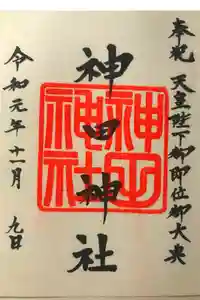 奉祝 天皇陛下御即位御大典
神田神社
神田神社
令和元年十一月 九日